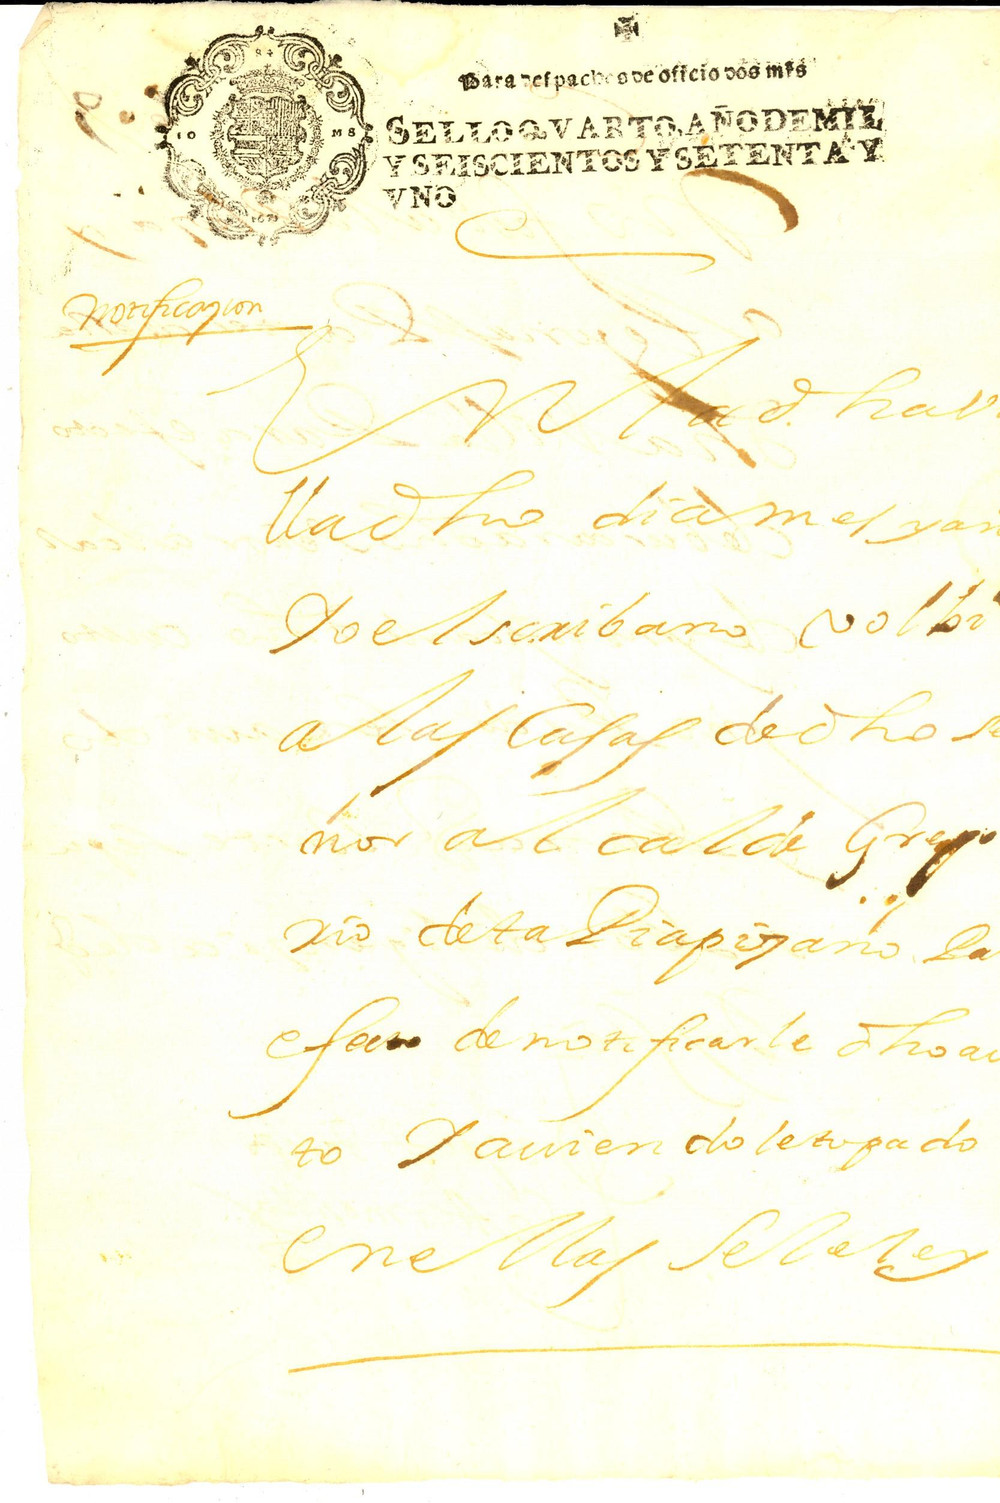 84
10 MS
1671
Para despachos de oficio dos mrs
SELLO QVARTO, AÑO DE MIL
Y SEISCIENTOS Y SETENTA Y
VNO
Notificazion
En la d. ha v
lla dho dia mes y añ
Yo el scribano volbi
a las Casas de dho se
ñor allcalde Grego
rio de tapia pizano Pa
efeto de notificarle dho au
to Y auiendole topado
en ellas se le ley